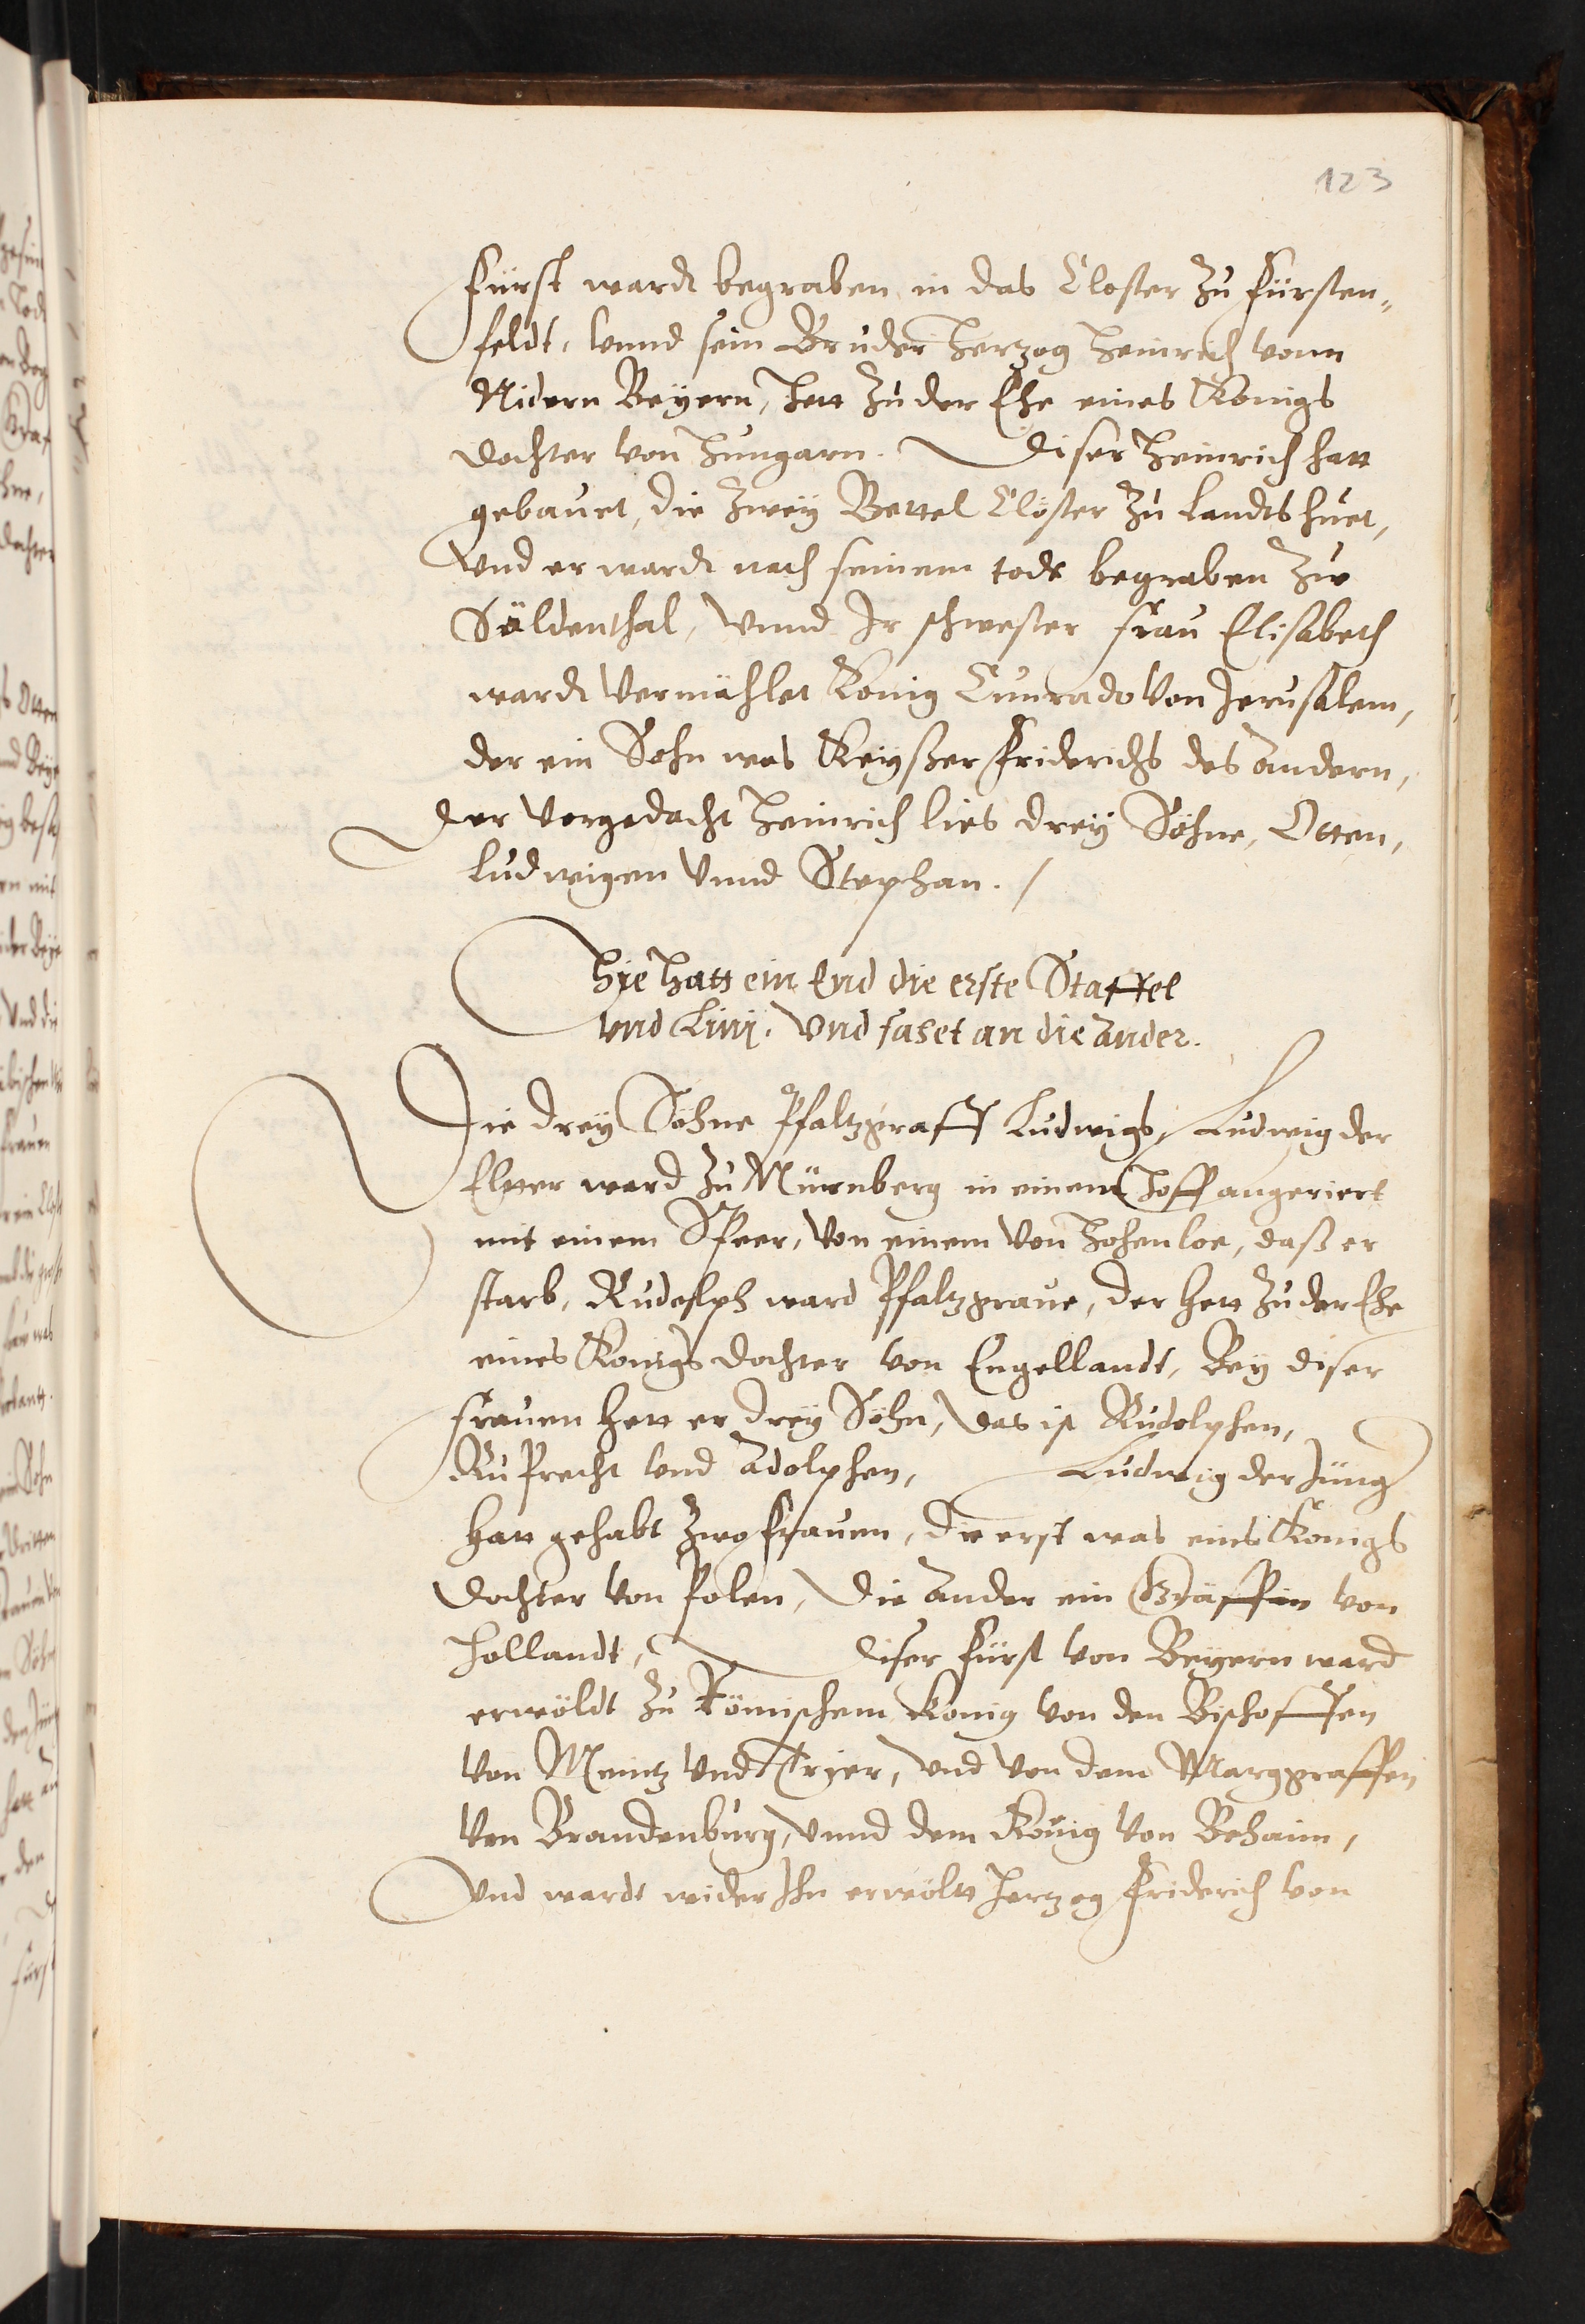 123
Fürst wardt begraben in das Closter zu Fürsten„
feldt, vnnd sein Bruder Herzog Heinrich vonn
Nidern Beyern, hett zu der Ehe eines Königs
dochter von Hungarn. Diser Heinrich hatt
gebauet, die zwey Bettel Clöster zu Landtshuet,
Vnd er wardt nach seinem tode begraben zue
Säldenthal, Vnnd Ir schwester Frau Elisabeth
wardt Vermählet König Cunrado Von Jerusalem,
der ein Sohn was Keyßer Friderichs des Andern,
Der Vorgedacht Heinrich lies drey Söhne, Otten,
Ludwigen Vnnd Stephan. /
Hie hatt ein End die erste Staffel
vnd Linj. Vnd fahet an die Ander.
Die drey Söhne Pfaltzgraff Ludwigs, Ludwig der
Elter ward zu Nürnberg in einem Hoff angeriert
mit einem Speer, Von einem Von Hohenloe, daß er
starb, Rudolph ward Pfaltzgraue, der hett zu der Ehe
eines Königs dochter von Engellandt, Bey diser
Frauen hett er drey Söhn, das ist Rudolphen,
Ruprecht vnd Adolphen, Ludwig der Jüng
hatt gehabt zwo Frauen, die erst was eins Königs
Dochter Von Polen, Die Ander ein Gräffin von
Hollandt, Diser Fürst von Beyern ward
erwöldt zu Römischem König von den Bischoffen
Von Meintz Vnd Trier, Vnd von dem Marggraffen
Von Brandenburg, Vnnd dem König Von Behaim,
Vnd wardt wider Ihn erwöltt Hertzog Friderich von